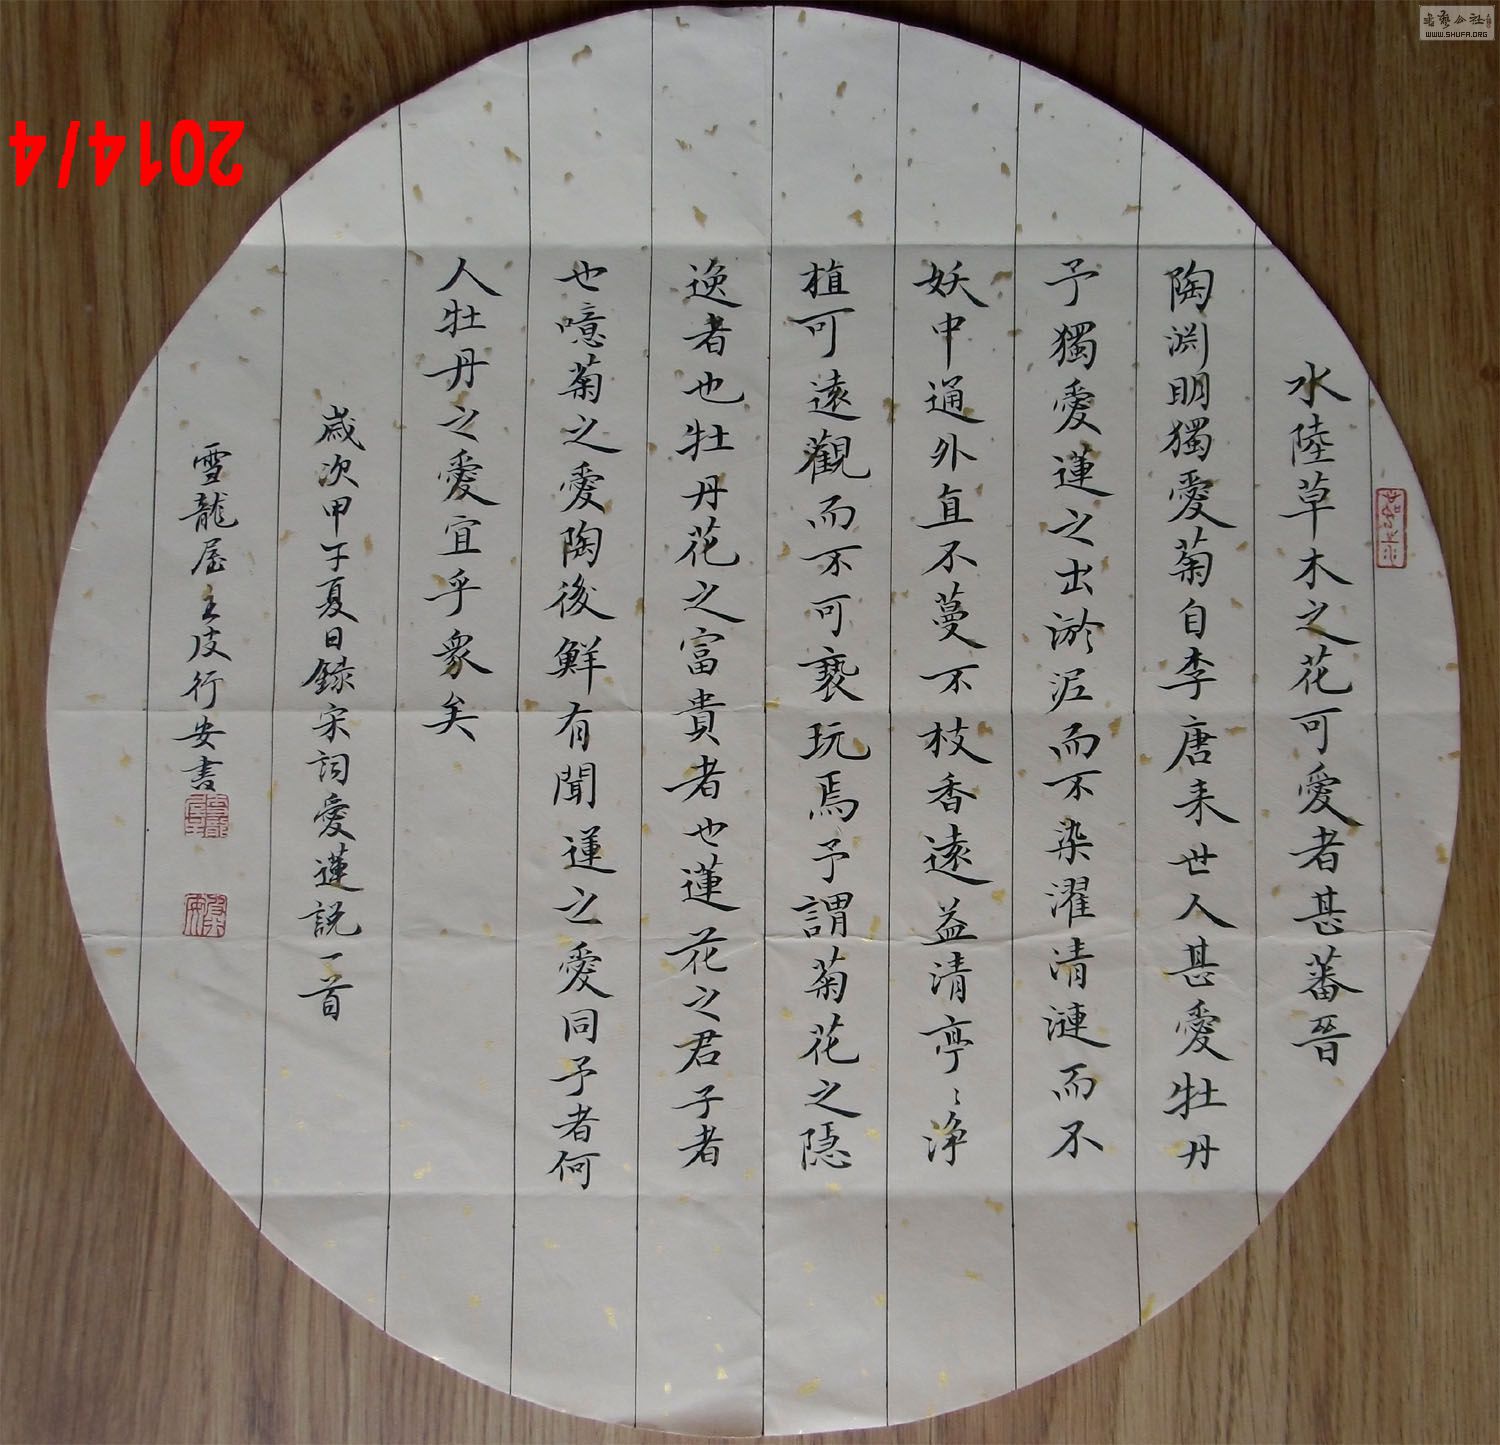 水陸草木之花可愛者甚蕃晉
陶渊明獨愛菊自李唐来世人甚愛牡丹
予獨愛蓮之出淤泥而不染濯清漣而不
妖中通外直不蔓不枝香遠益清亭〻淨
植可遠觀而不可褻玩焉予謂菊花之隱
逸者也牡丹花之富貴者也蓮花之君子者
也噫菊之愛陶後鮮有聞蓮之愛同予者何
人牡丹之愛宜乎衆矣
歲次甲午夏日録宋词愛蓮説一首
雪龍屋主皮行安書
2014/4
書藝公社
WWW.SHUFA.ORG